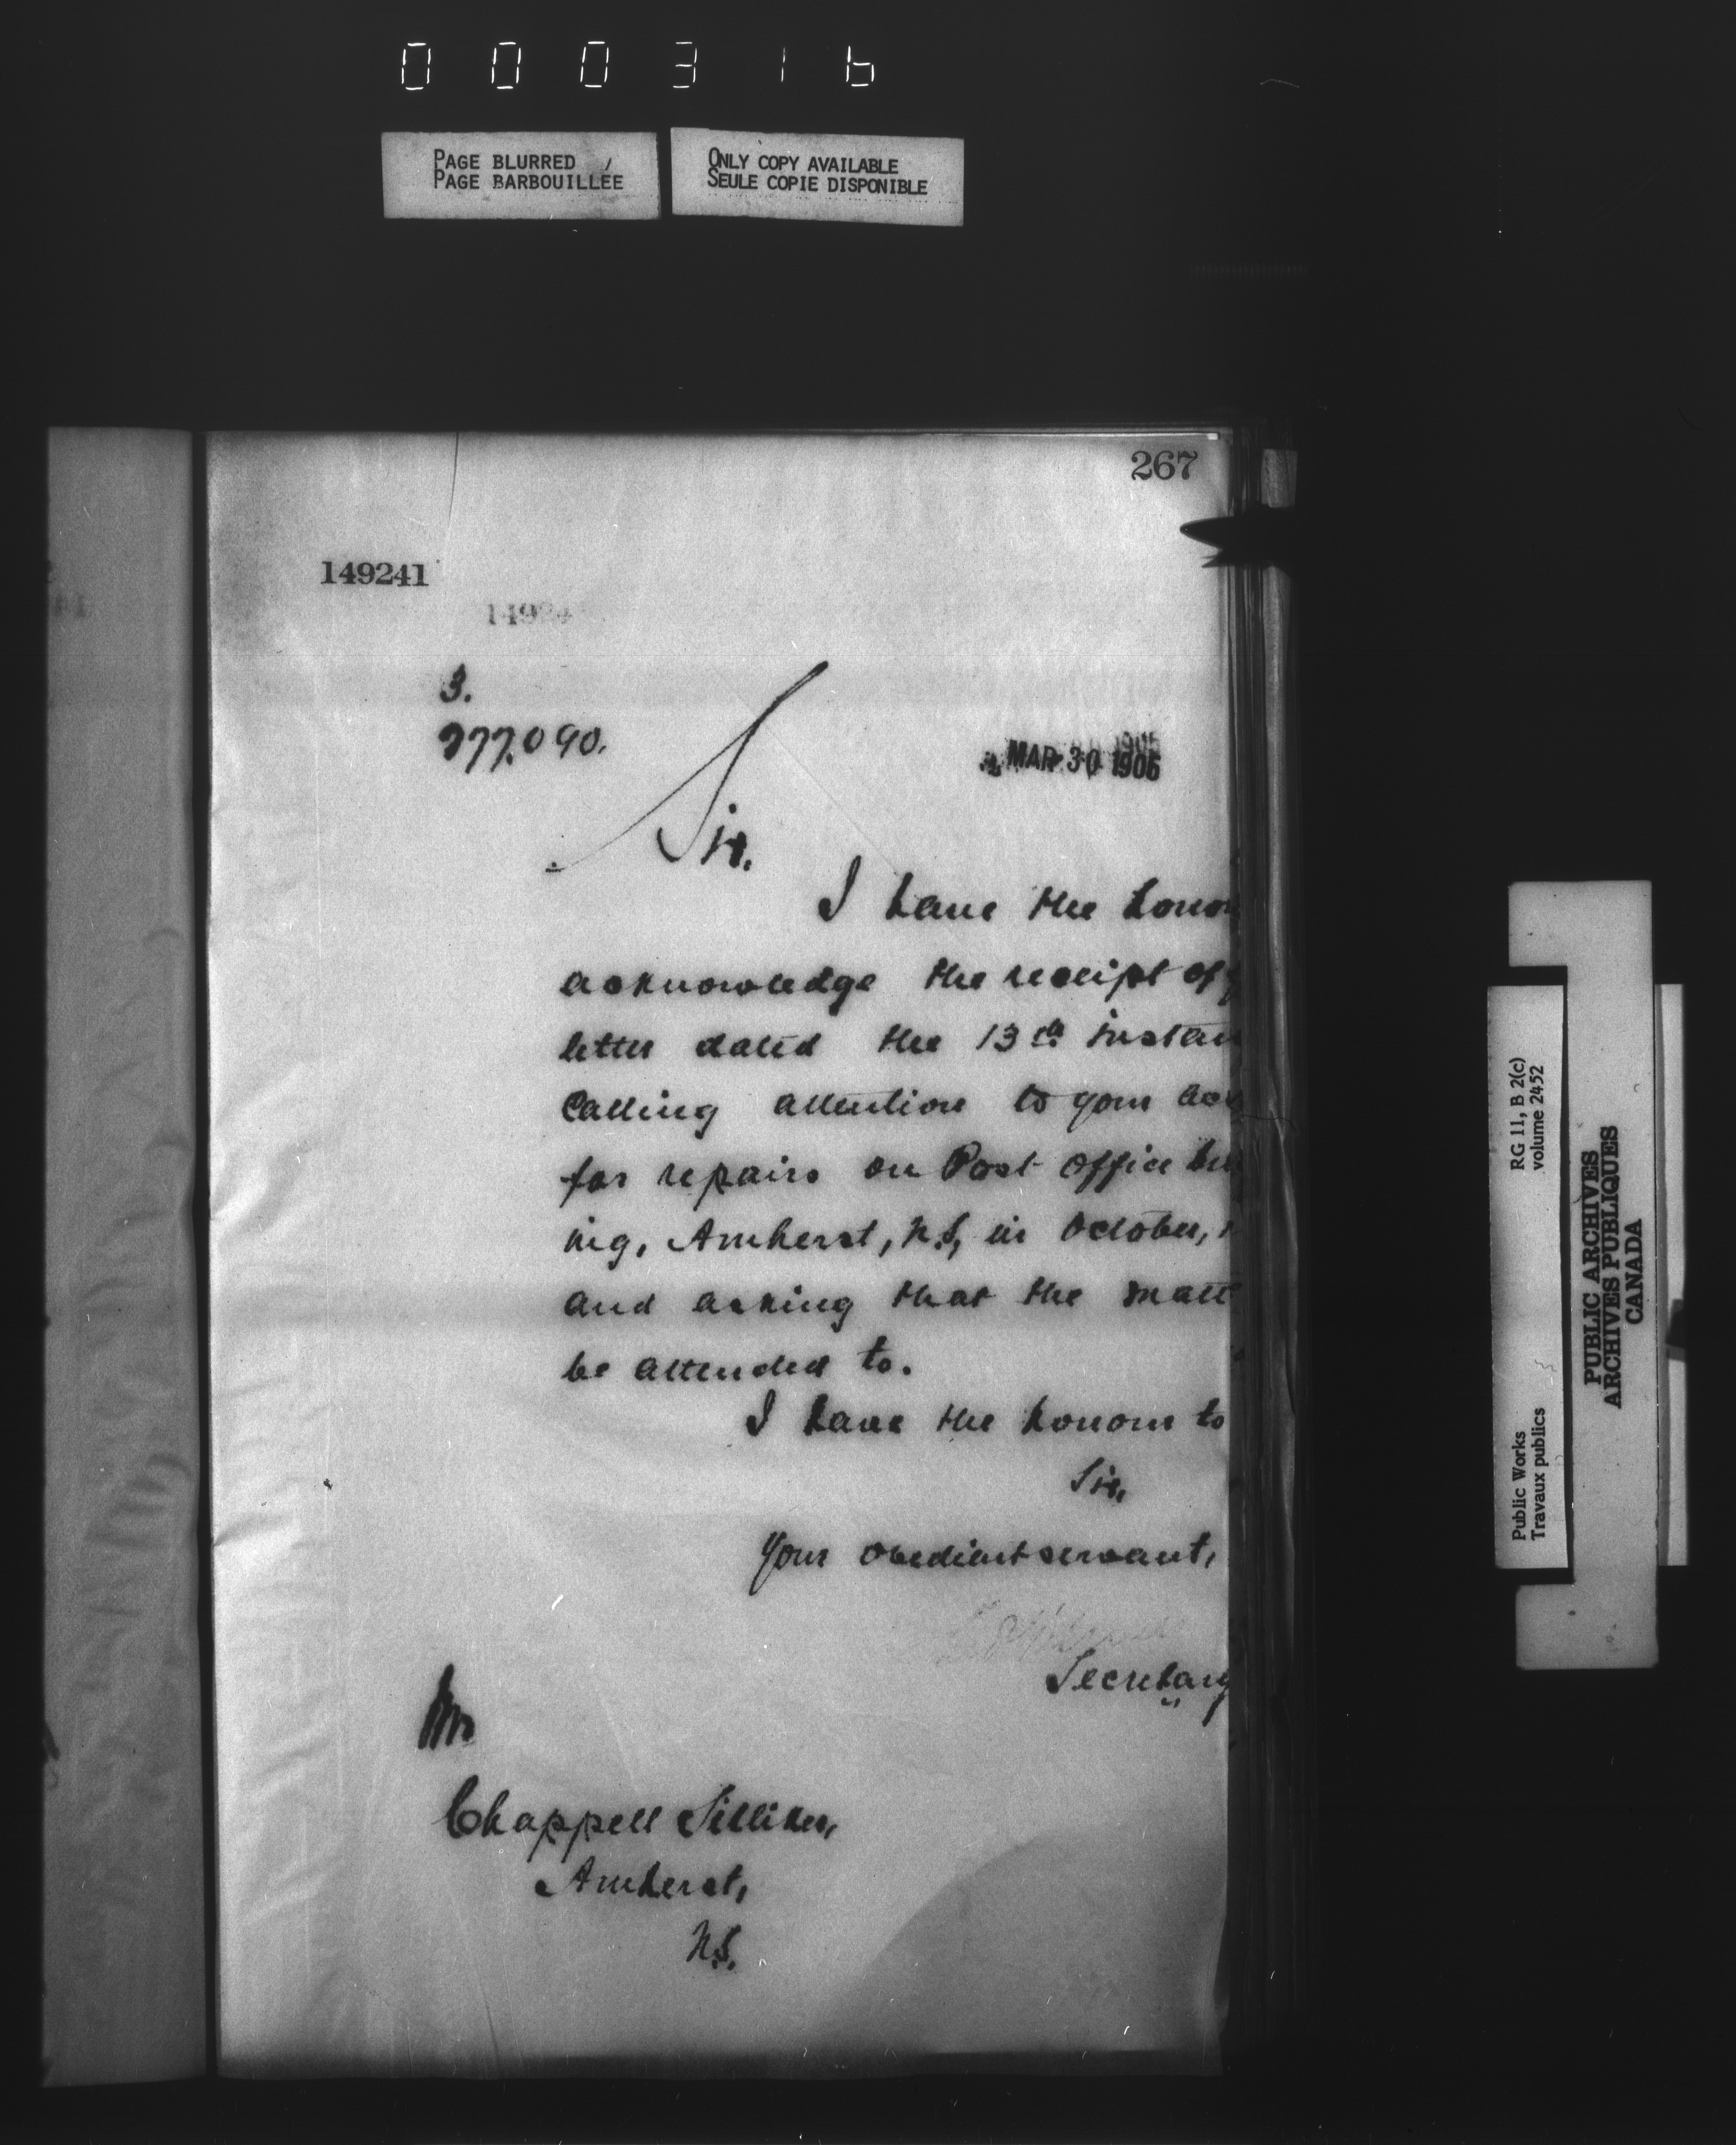 000316
PAGE BLURRED
PAGE BARBOUILLÉE
ONLY COPY AVAILABLE
SEULE COPIE DISPONIBLE
267
149241
14924
3.
277.090.
MAR 30 1906
Sir.
I have the honou
acknowledge the receipt of
letter dated the 13th instan
Calling attention to your acc
for repairs on Post Office bui
ing, Amherst, N.S, in October,
and asking that the matt
be attended to.
I have the honour to
Sir,
Your obedient servant,
Secretary
Mr
Chappell Silliker,
Amherst,
N.S.
Public Works
Travaux publics
RG 11, B 2(c)
volume 2452
PUBLIC ARCHIVES
ARCHIVES PUBLIQUES
CANADA